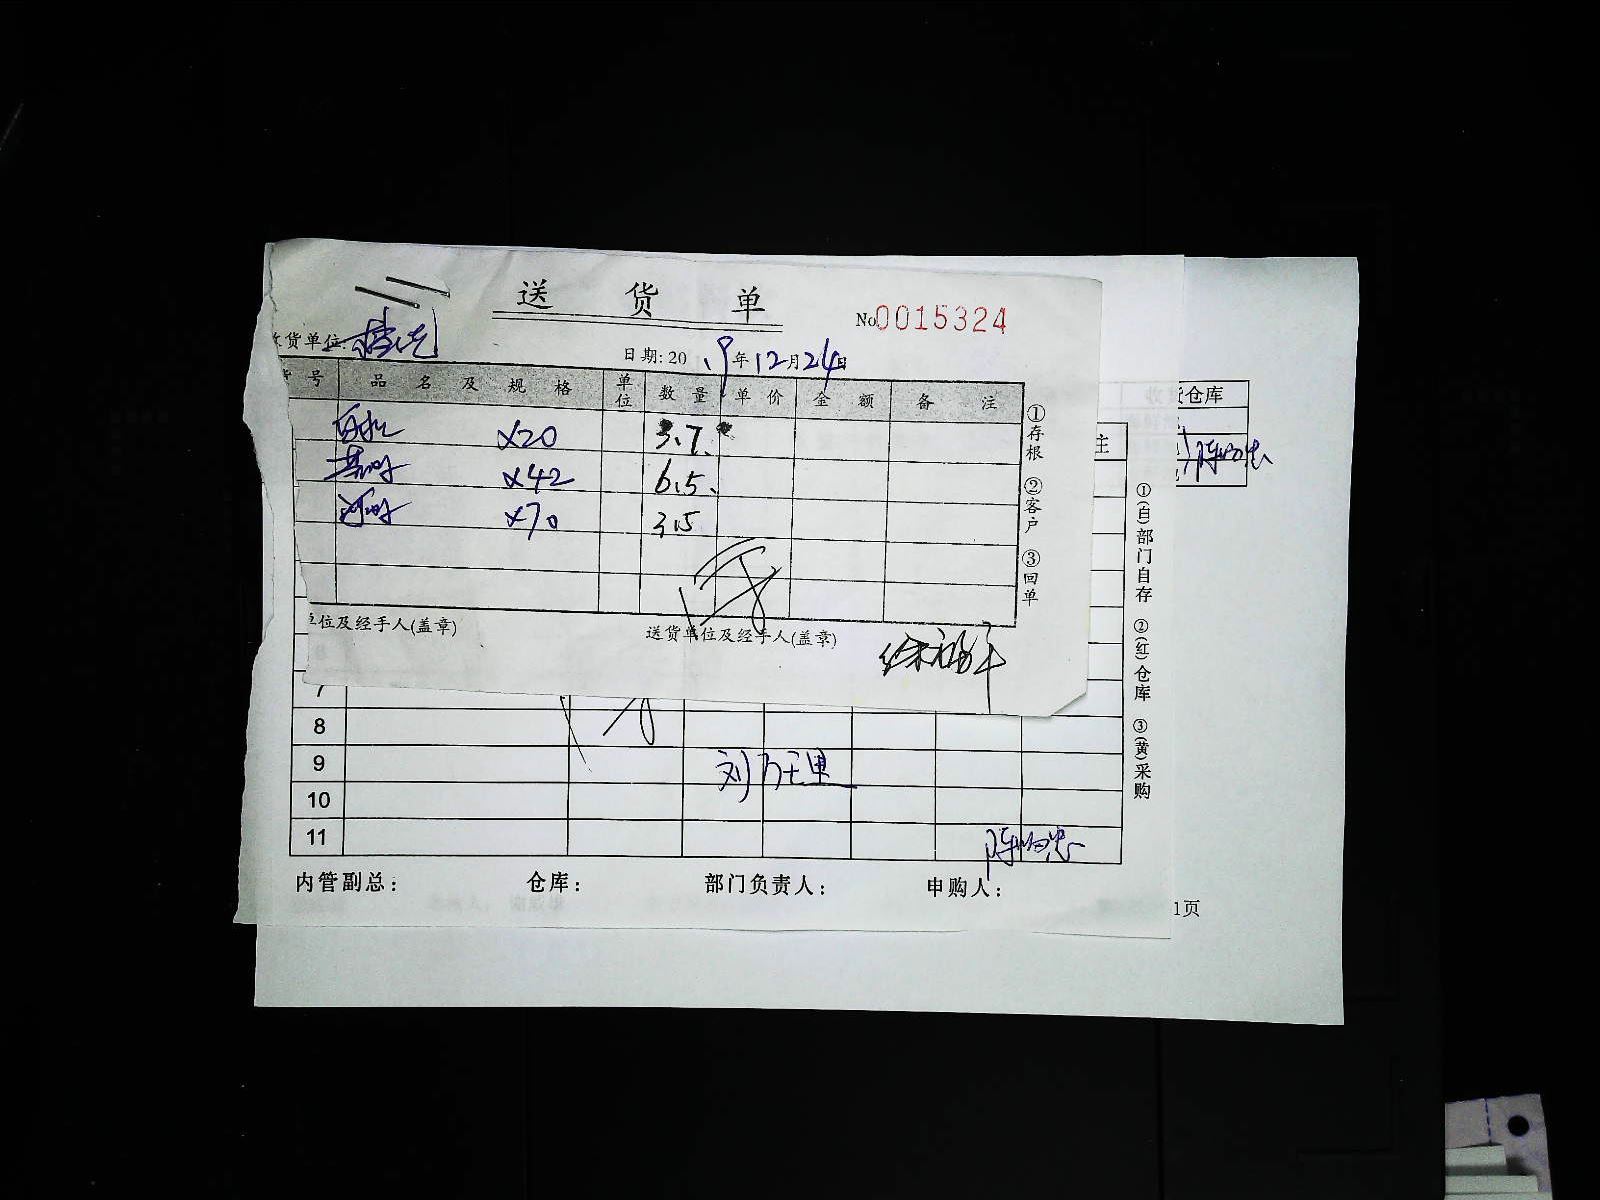 送货单
No 0015324
货单位:
日期:2019年12月24日
号 品名及规格 单位 数量 单价 金额 备注
×20 3.7
×42 6.5
×70 3.5
①存根 ②客户 ③回单
位及经手人(盖章) 送货单位及经手人(盖章)
仓库
主
7
8
9 刘万里
10
11
①(白)部门自存 ②(红)仓库 ③(黄)采购
内管副总: 仓库: 部门负责人: 申购人:
1页